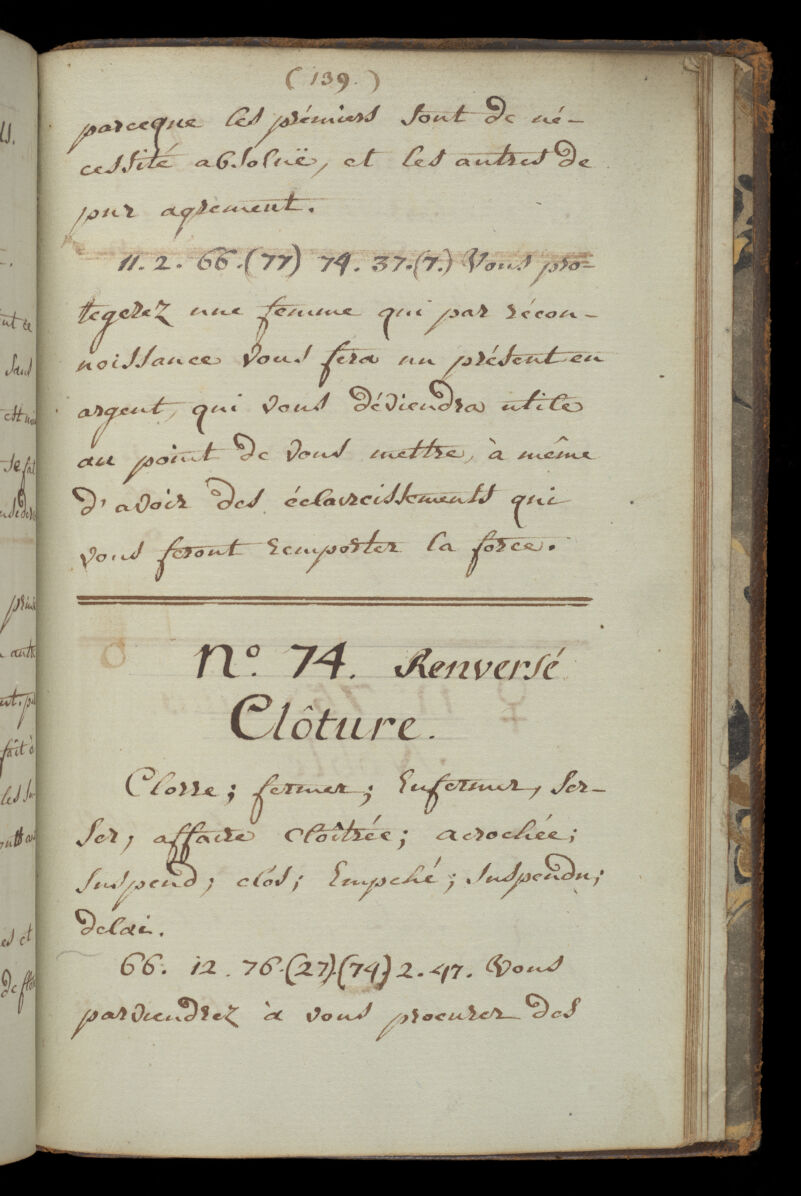 (139.)
parceque les prémiers sont de né-
cessité absoluë, et les autres de
pur agrement.
11. 2. 66. (77) 74. 37. (7.) Vous pro-
tegerez une femme qui par récon-
noissance vous fera un présent en
argent, qui vous déviendra utile
au point de vous mettre, à même
d'avoir des éclaircissements qui
vous feront remporter la force.
N.º 74. Renversé
Clôture.
Clorre; fermer; Enfermer, ser-
ser, affaire cloîtrée; acrochée;
suspend; clos; Empché; suspendu;
delai.
66. 12. 76. (27). (74) 2. 47. Vous
parviendrez à vous procurer des